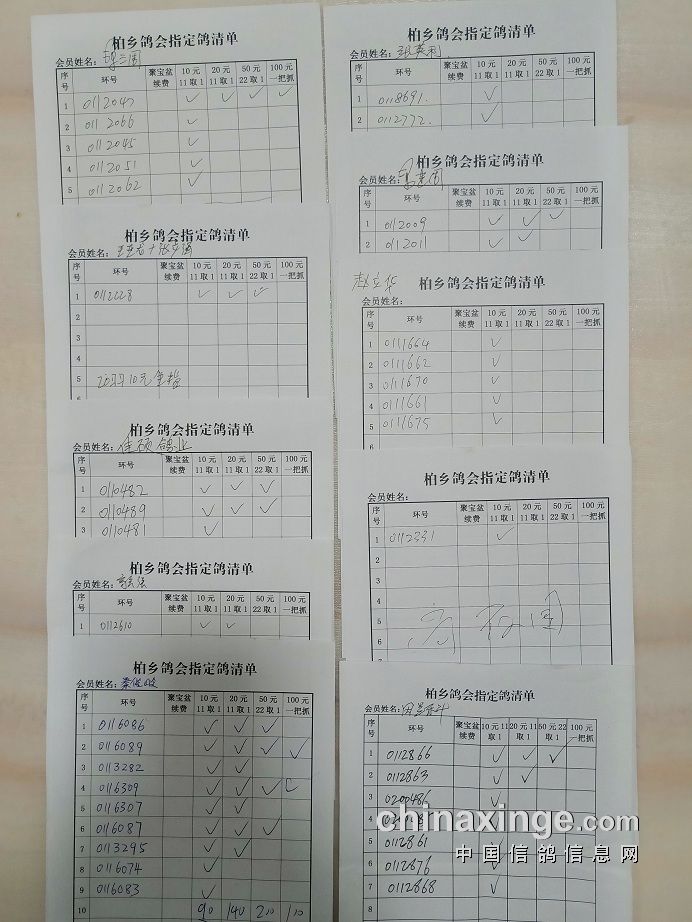 柏乡鸽会指定鸽清单
会员姓名:
序号 环号 聚宝盆续费 10元11取1 20元11取1 50元22取1 100元一把抓
1 0112047 ✓ ✓ ✓ ✓
2 0112066 ✓
3 0112045 ✓
4 0112051 ✓
5 0112062 ✓
柏乡鸽会指定鸽清单
会员姓名:
序号 环号 聚宝盆续费 10元11取1 20元11取1 50元22取1 100元一把抓
1 0112228 ✓ ✓ ✓
5
柏乡鸽会指定鸽清单
会员姓名:佳硕鸽业
序号 环号 聚宝盆续费 10元11取1 20元11取1 50元22取1 100元一把抓
1 0110482 ✓ ✓ ✓
2 0110489 ✓ ✓ ✓
3 0110481 ✓
柏乡鸽会指定鸽清单
会员姓名:
序号 环号 聚宝盆续费 10元11取1 20元11取1 50元22取1 100元一把抓
1 0112610 ✓ ✓
柏乡鸽会指定鸽清单
会员姓名:
序号 环号 聚宝盆续费 10元11取1 20元11取1 50元22取1 100元一把抓
1 0116086 ✓ ✓ ✓
2 0116089 ✓ ✓ ✓ ✓
3 0113282 ✓ ✓
4 0116309 ✓ ✓ ✓
5 0116307 ✓ ✓
6 0116087 ✓ ✓ ✓
7 0113295 ✓ ✓
8 0116074 ✓
9 0116083 ✓
10 90 140
柏乡鸽会指定鸽清单
会员姓名:张英利
序号 环号 聚宝盆续费 10元11取1 20元11取1 50元22取1 100元一把抓
1 0118691. ✓
2 0112772. ✓
柏乡鸽会指定鸽清单
会员姓名:
序号 环号 聚宝盆续费 10元11取1 20元11取1 50元22取1 100元一把抓
1 0112009 ✓ ✓ ✓
2 0112011 ✓ ✓
赵立华 柏乡鸽会指定鸽清单
会员姓名:
序号 环号 聚宝盆续费 10元11取1 20元11取1 50元22取1 100元一把抓
1 0111664 ✓
2 0111662 ✓
3 0111670 ✓
4 0111661 ✓
5 0111675 ✓
6
柏乡鸽会指定鸽清单
会员姓名:
序号 环号 聚宝盆续费 10元11取1 20元11取1 50元22取1 100元一把抓
1 0112331 ✓
2
3
4
5
6
柏乡鸽会指定鸽清单
会员姓名:
序号 环号 聚宝盆续费 10元11取1 20元11取1 50元22取1 100元一把抓
1 0112866 ✓ ✓ ✓
2 0112863 ✓ ✓
3 0200486 ✓
4
5 0112861
6 0112876 ✓
7 0112868 ✓
chinaxinge.com
中国信鸽信息网